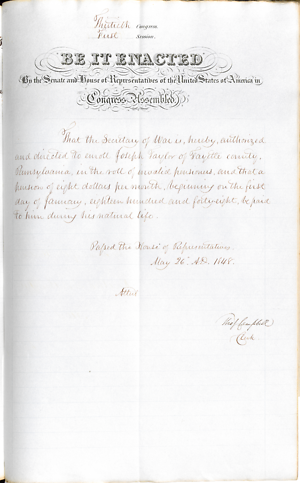 Thirtieth Congress
First Session.
BE IT ENACTED
By the Senate and House of Representatives of the United States of America in
Congress Assembled,
That the Secretary of War is, hereby, authorized
and directed to enroll Joseph Taylor of Fayette county,
Pennsylvania, in the roll of invalid pensioners, and that a
pension of eight dollars per month, beginning on the first
day of January, eighteen hundred and forty eight, be paid
to him during his natural life.
Passed the House of Representatives
May 26 A.D. 1848.
Attest
Thos. J. Campbell
Clerk